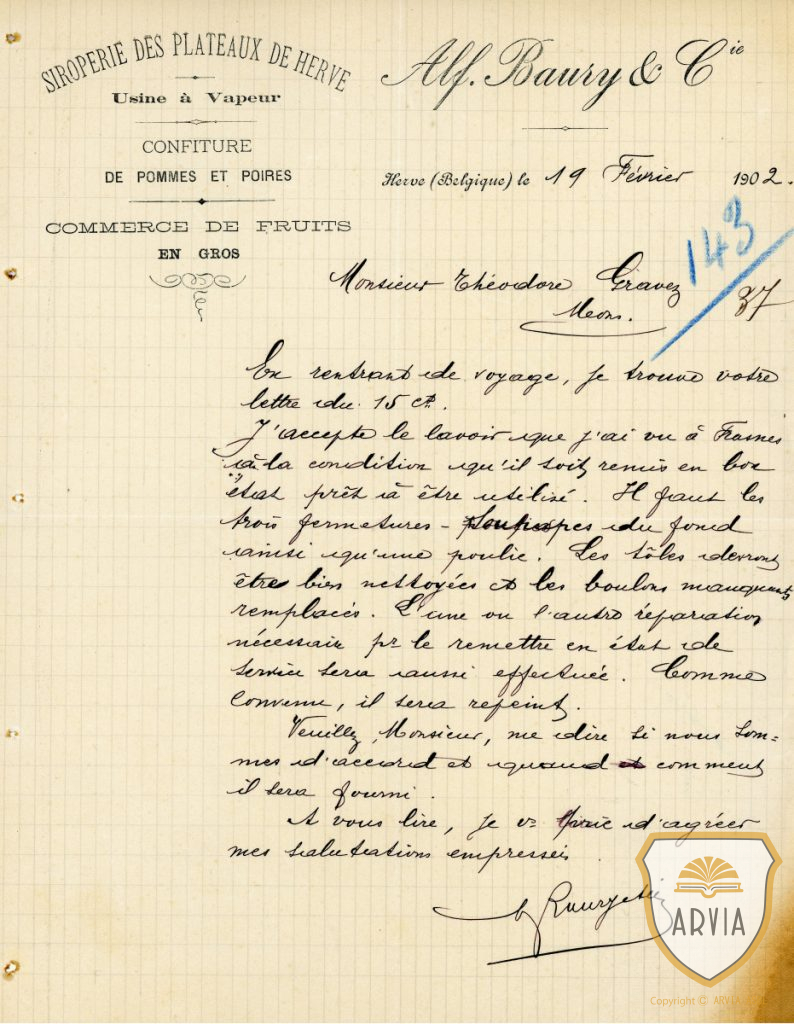 SIROPERIE DES PLATEAUX DE HERVE
Usine à Vapeur
CONFITURE
DE POMMES ET POIRES
COMMERCE DE FRUITS
EN GROS
Alf. Baury & Cie
Herve (Belgique) le 19 Février 1902.
143
37
Monsieur Théodore Gravez
Mons.
En rentrant de voyage, je trouve votre
lettre du 15 ct.
J'accepte le lavoir que j'ai vu à Frasnes
à la condition qu'il soit remis en bon
état prêt à être utilisé. Il faut les
trois fermetures - du fond
ainsi qu'une poulie. Les tôles devront
être bien nettoyées et les boulons manquants
remplacés. L'une ou l'autre réparation
nécessaire pr le remettre en état de
service sera aussi effectuée. Comme
convenu, il sera repeint.
Veuillez, Monsieur, me dire si nous som=
mes d'accord et quand et comment
il sera fourni.
A vous lire, je vs prie d'agréer
mes salutations empressées
ARVIA
Copyright © ARVIA